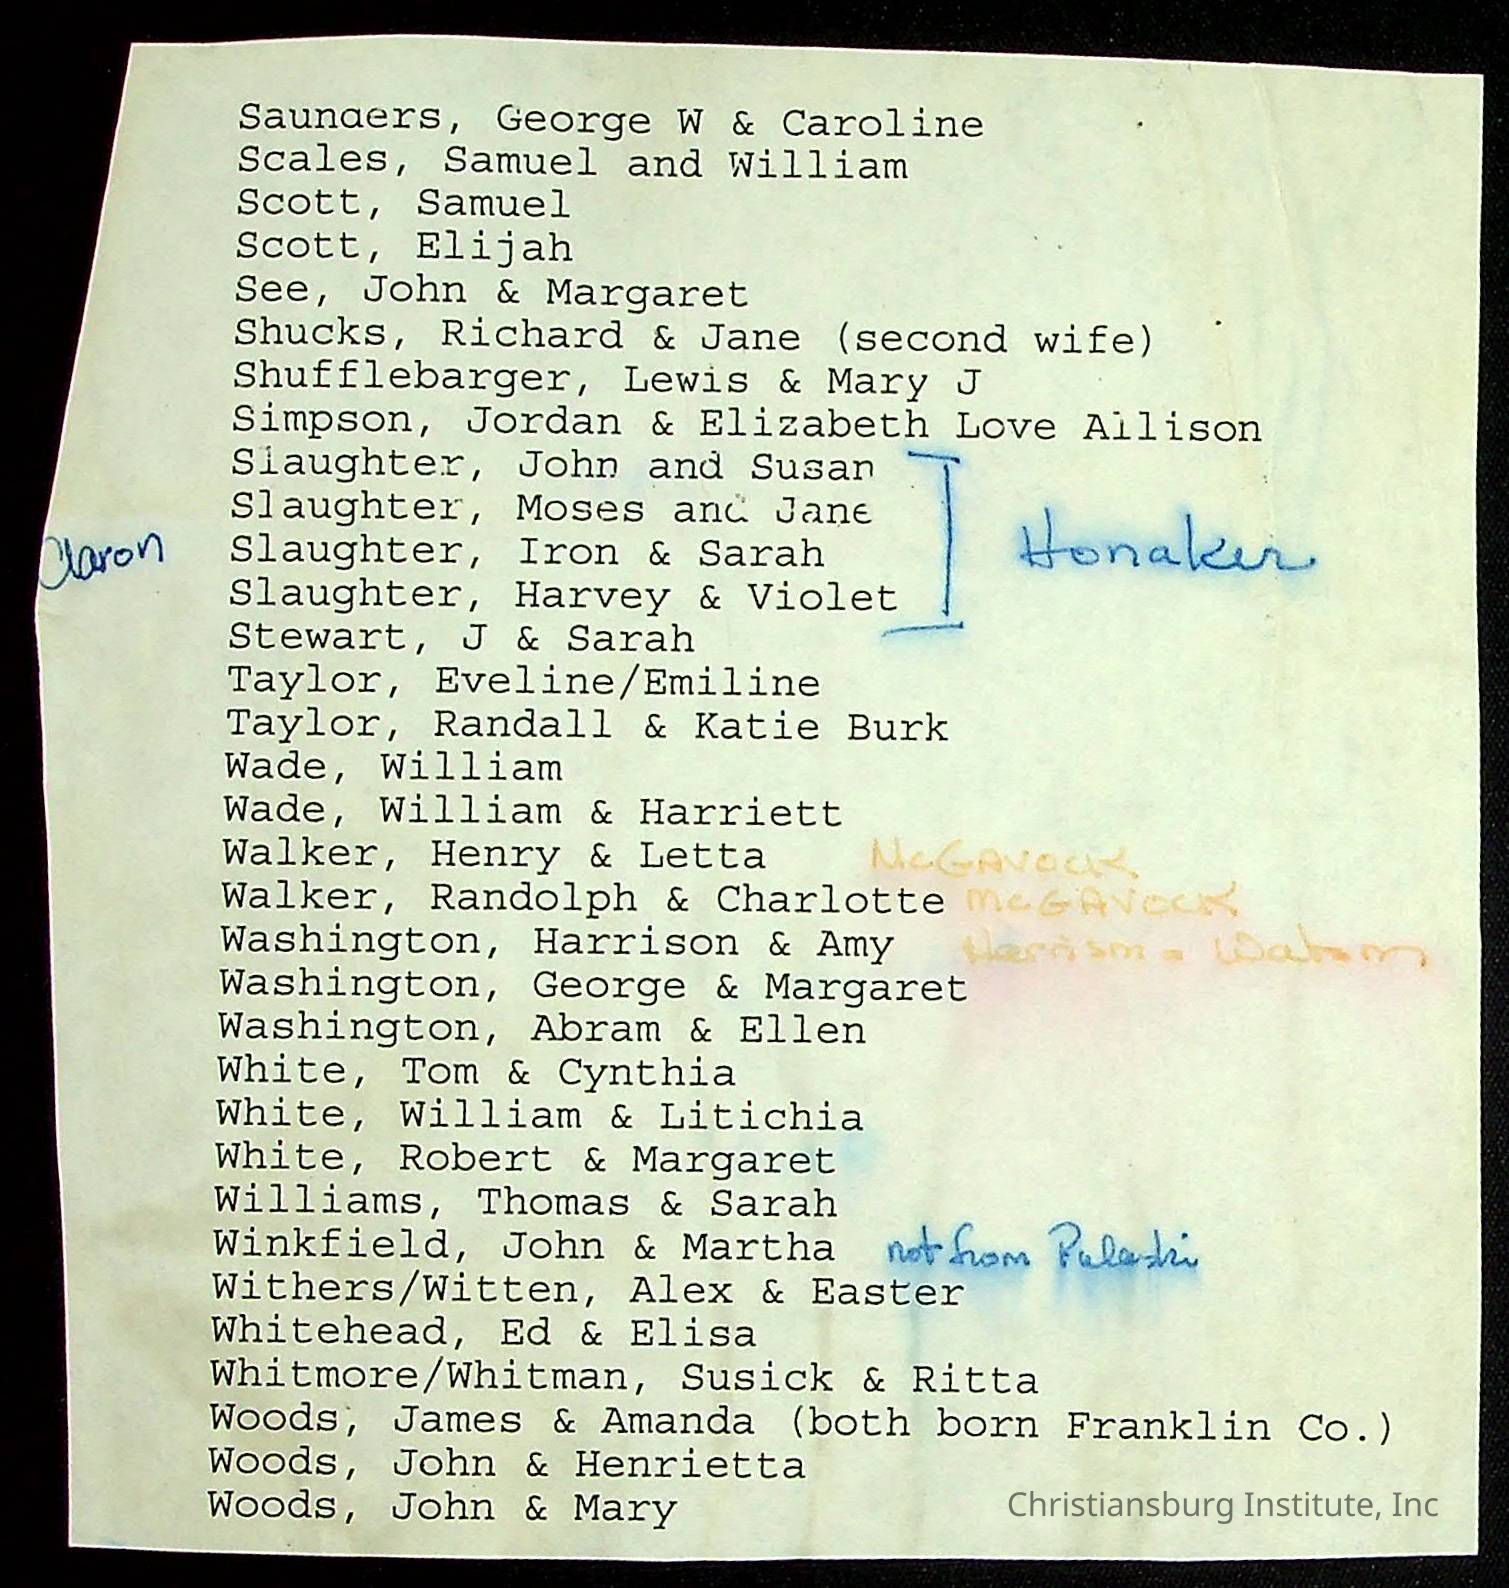 Saunders, George W & Caroline
Scales, Samuel and William
Scott, Samuel
Scott, Elijah
See, John & Margaret
Shucks, Richard & Jane (second wife)
Shufflebarger, Lewis & Mary J
Simpson, Jordan & Elizabeth Love Allison
Slaughter, John and Susan
Slaughter, Moses and Jane
Aaron Slaughter, Iron & Sarah Honaker
Slaughter, Harvey & Violet
Stewart, J & Sarah
Taylor, Eveline/Emiline
Taylor, Randall & Katie Burk
Wade, William
Wade, William & Harriett
Walker, Henry & Letta McGavock
Walker, Randolph & Charlotte McGavock
Washington, Harrison & Amy Harrison - Watson
Washington, George & Margaret
Washington, Abram & Ellen
White, Tom & Cynthia
White, William & Litichia
White, Robert & Margaret
Williams, Thomas & Sarah
Winkfield, John & Martha not from Pulaski
Withers/Witten, Alex & Easter
Whitehead, Ed & Elisa
Whitmore/Whitman, Susick & Ritta
Woods, James & Amanda (both born Franklin Co.)
Woods, John & Henrietta
Woods, John & Mary
Christiansburg Institute, Inc